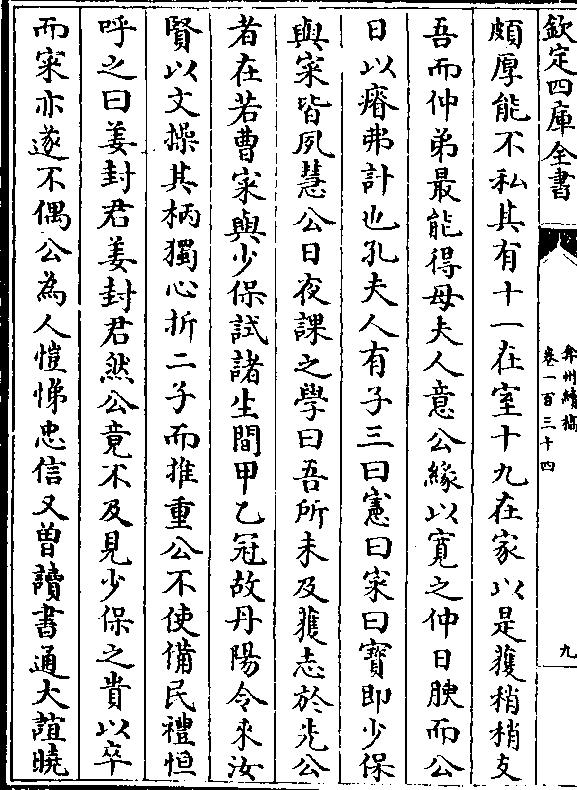 欽定四庫全書
弇州續稿
卷一百三十四
九
頗厚能不私其有十一在室十九在家以是獲稍稍支
吾而仲弟最能得母夫人意公緣以寛之仲日腴而公
日以瘠弗計也孔夫人有子三曰憲曰寀曰寳即少保
與寀皆夙慧公日夜課之學曰吾所未及獲志於先公
者在若曹寀與少保試諸生間甲乙冠故丹陽令來汝
賢以文操其柄獨心折二子而推重公不使備民禮恒
呼之曰姜封君姜封君然公竟不及見少保之貴以卒
而寀亦遂不偶公為人愷悌忠信又曽讀書通大誼曉